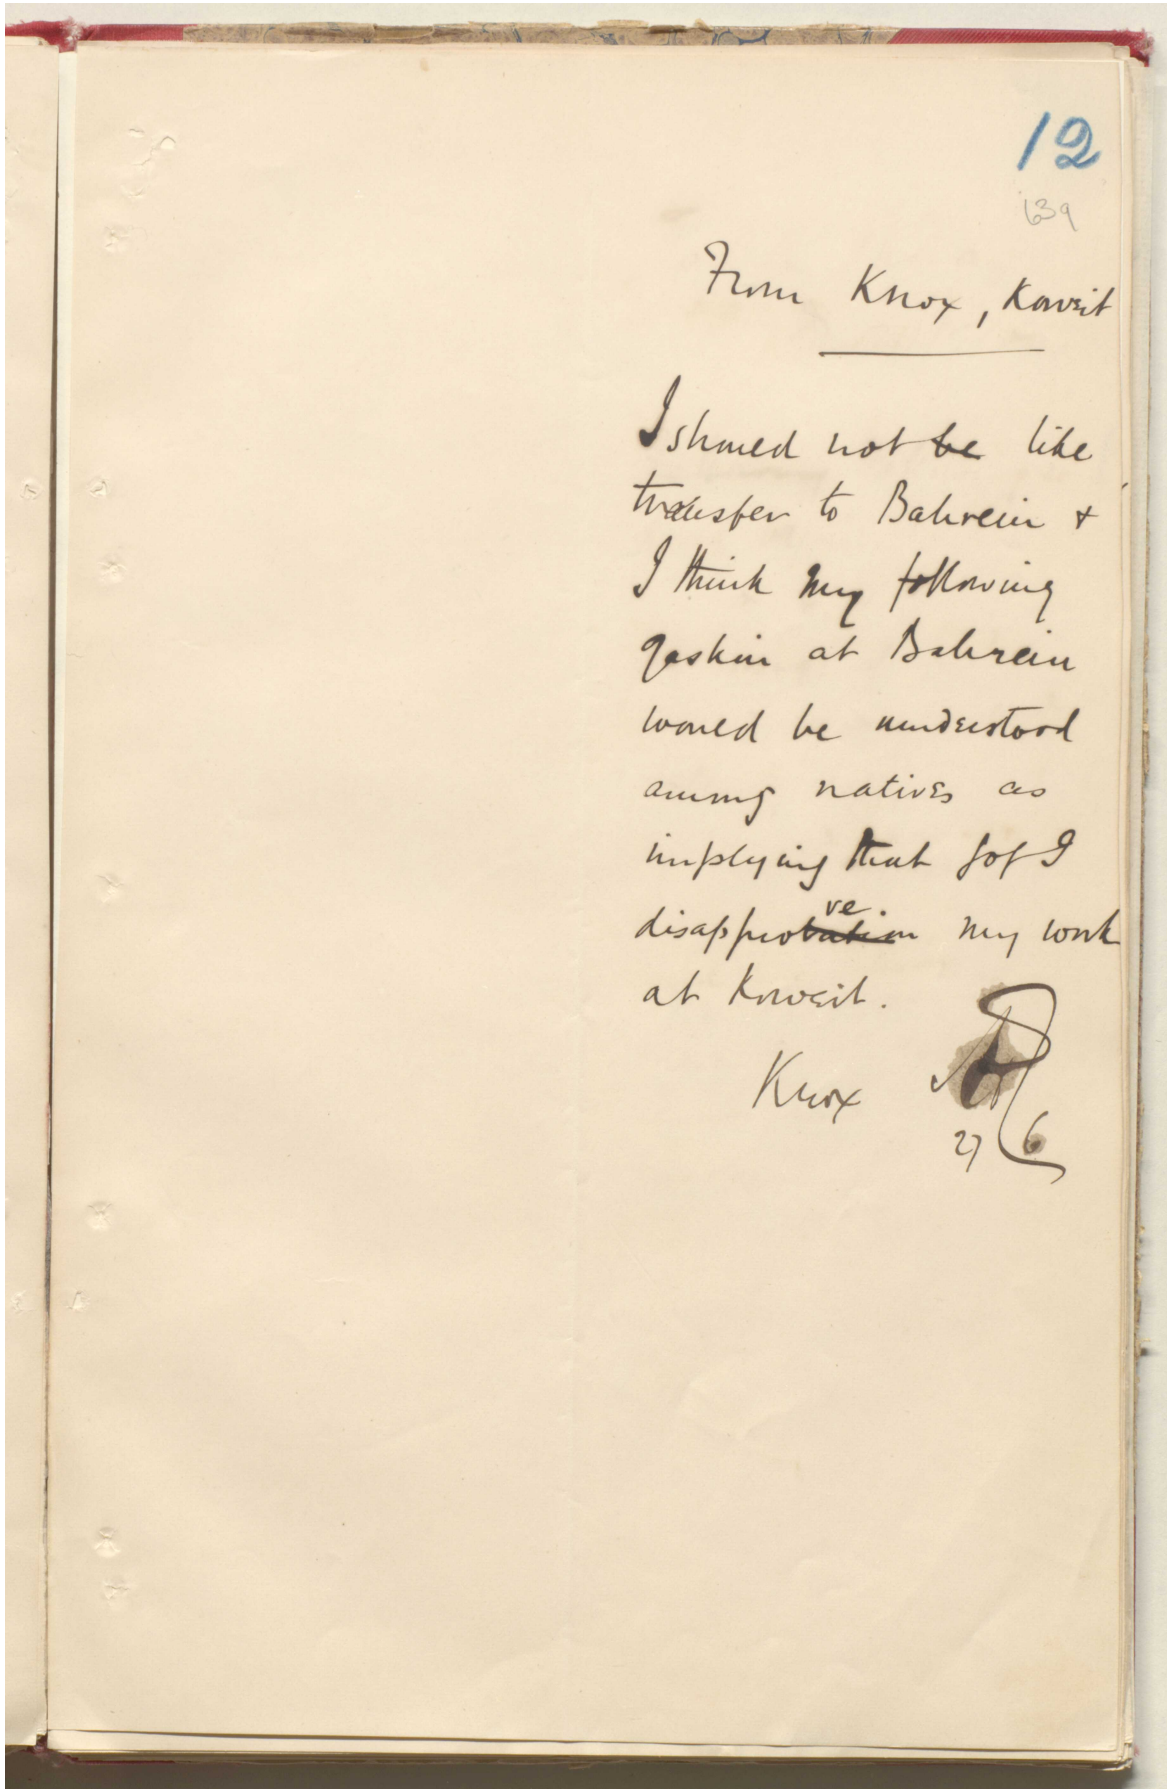 12
63a
From Knox, Koweit
I should not be like
transfer to Bahrein &
I think my following
Gaskin at Bahrein
would be understood
among natives as
implying that Gof I
disapprobation ve my work
at Koweit.
Knox
27 6